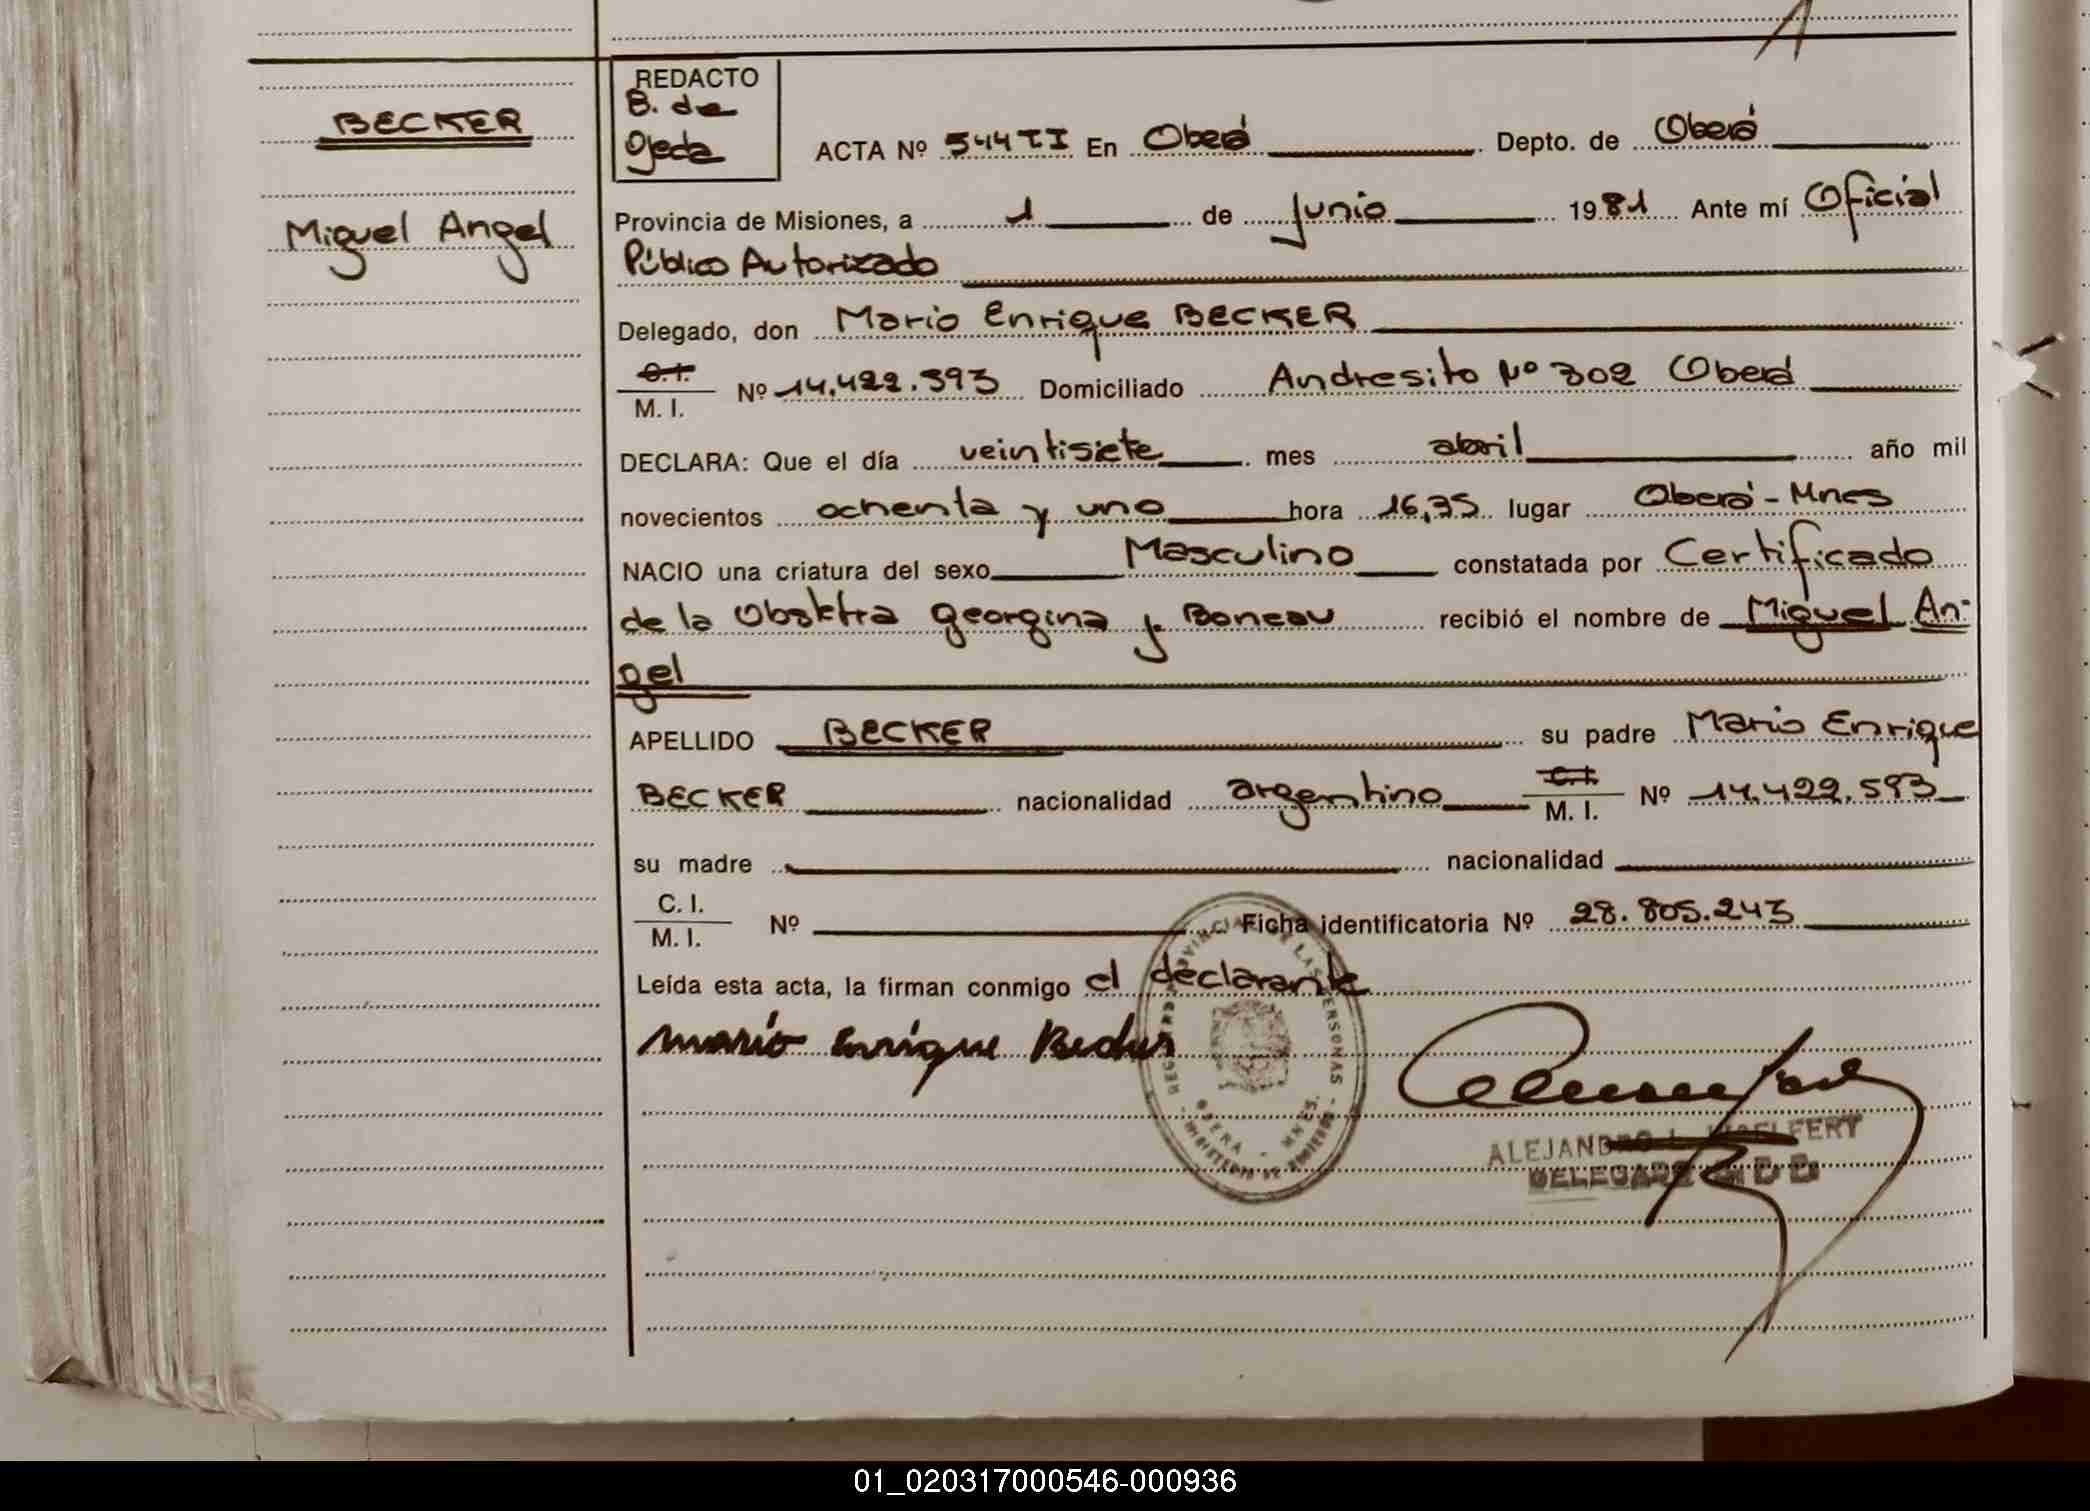 BECKER
Miguel Angel
REDACTO
B. de
Ojeda
ACTA Nº 544 TI En Oberá Depto. de Oberá
Provincia de Misiones, a 1 de Junio 1981 Ante mí Oficial
Público Autorizado
Delegado, don Mario Enrique BECKER
C.I.
M. I. Nº 14.422.593 Domiciliado Andresito Nº 302 Oberá
DECLARA: Que el día veintisiete mes abril año mil
novecientos ochenta y uno hora 16,35 lugar Oberá - Mnes
NACIO una criatura del sexo Masculino constatada por Certificado
de la Obstetra Georgina J. Boneau recibió el nombre de Miguel An-
gel
APELLIDO BECKER su padre Mario Enrique
BECKER nacionalidad argentino C.I. M. I. Nº 14.422.593
su madre nacionalidad
C. I.
M. I. Nº Ficha identificatoria Nº 28.805.243
Leída esta acta, la firman conmigo el declarante
Mario Enrique Becker
OBERA - MNES.
ALEJANDRO
DELEGADO
01_020317000546-000936